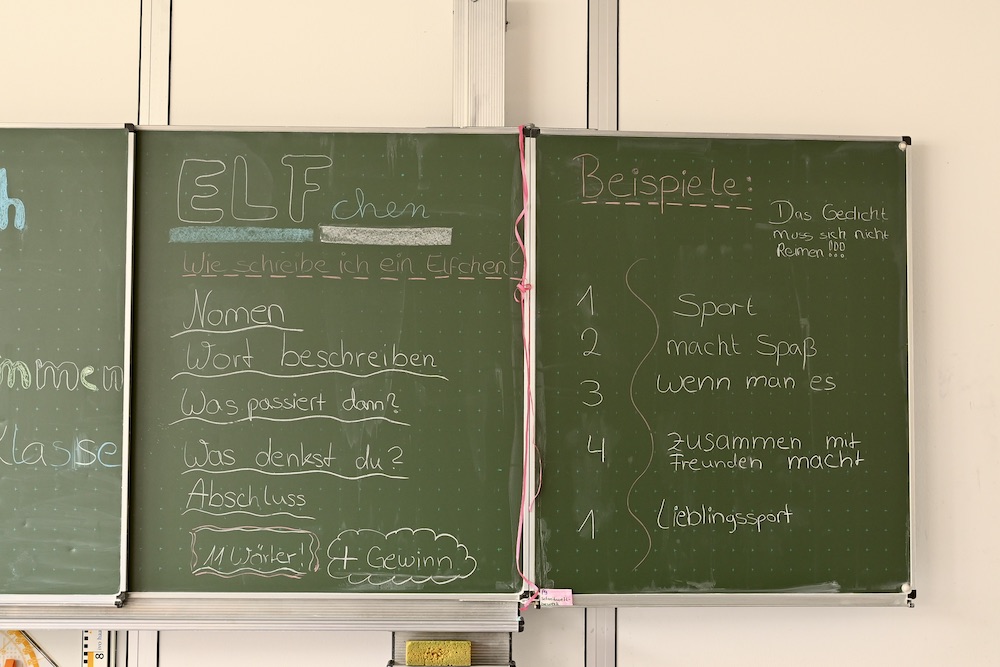 h
mmen
Klasse
ELFchen
Wie schreibe ich ein Elfchen?
Nomen
Wort beschreiben
Was passiert dann?
Was denkst du?
Abschluss
11 Wörter!
+ Gewinn
Beispiele:
Das Gedicht
muss sich nicht
Reimen!!!
1 Sport
2 macht Spaß
3 wenn man es
4 zusammen mit
Freunden macht
1 Lieblingssport
8